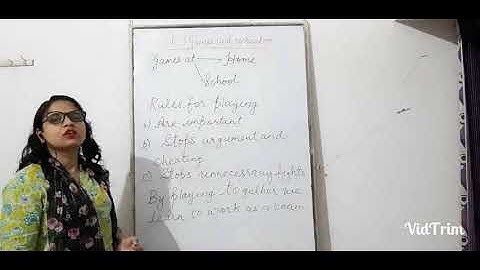 Games and recreation
Games at → Home
School
Rules for playing
a) Are important
b) Stops argument and
cheating
c) Stops unnecessary fights
By playing together we
learn to work as a team
VidTrim